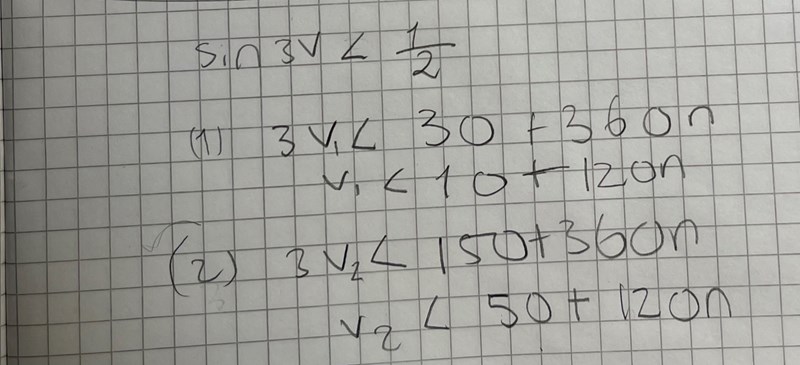 sin 3v < 1/2
(1) 3v₁ < 30 + 360n
v₁ < 10 + 120n
(2) 3v₂ < 150 + 360n
v₂ < 50 + 120n